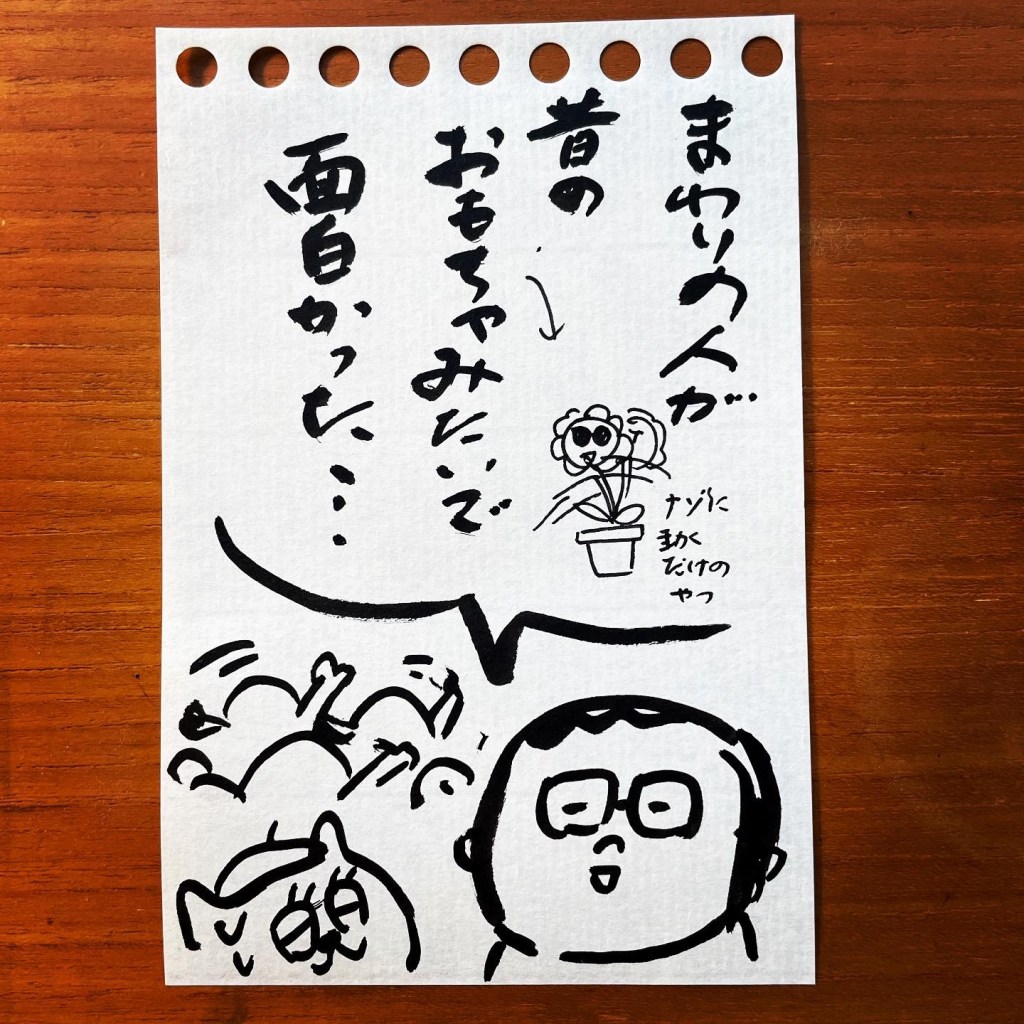 まわりの人が…
昔の
おもちゃみたいで
面白かった…
ナゾに
動く
だけの
やつ